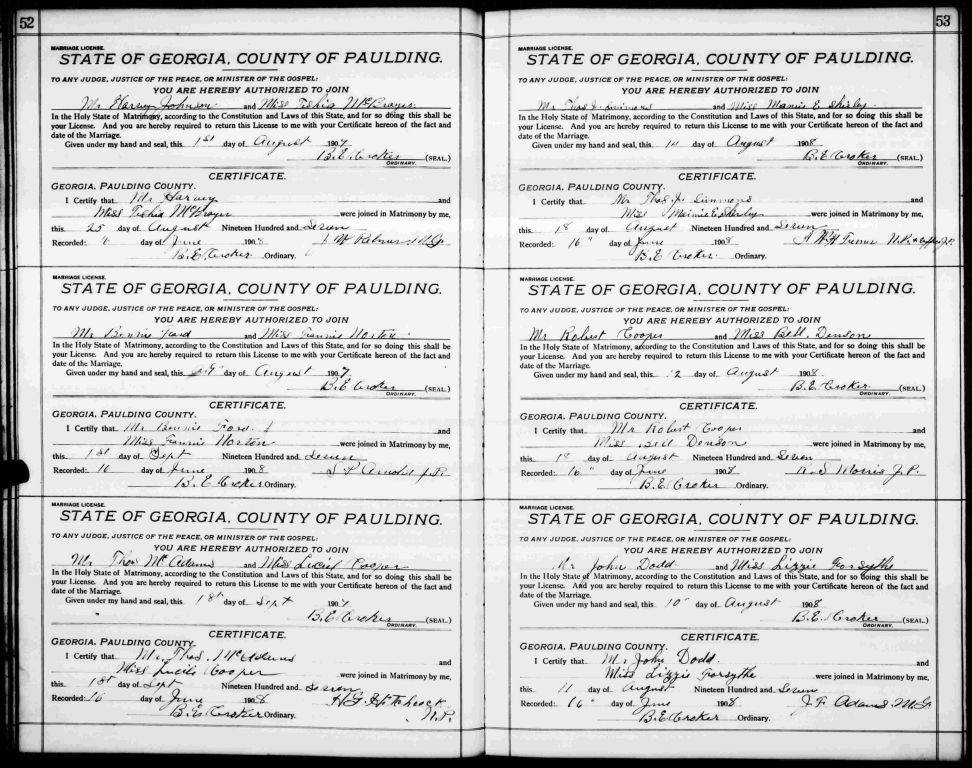 52
MARRIAGE LICENSE.
STATE OF GEORGIA, COUNTY OF PAULDING.
TO ANY JUDGE, JUSTICE OF THE PEACE, OR MINISTER OF THE GOSPEL:
YOU ARE HEREBY AUTHORIZED TO JOIN
Mr Harvey Johnson and Miss Tishia McBrayer
In the Holy State of Matrimony, according to the Constitution and Laws of this State, and for so doing this shall be
your License. And you are hereby required to return this License to me with your Certificate hereon of the fact and
date of the Marriage.
Given under my hand and seal, this 1st day of August 1907
B.E. Croker (SEAL.)
ORDINARY.
CERTIFICATE.
GEORGIA, PAULDING COUNTY.
I Certify that Mr Harvey and
Miss Tishia McBrayer were joined in Matrimony by me,
this 25 day of August Nineteen Hundred and Seven
Recorded: day of June 1908
B.E. Croker Ordinary.
STATE OF GEORGIA, COUNTY OF PAULDING.
TO ANY JUDGE, JUSTICE OF THE PEACE, OR MINISTER OF THE GOSPEL:
YOU ARE HEREBY AUTHORIZED TO JOIN
Mr Bennie Ford and Miss Fannie Norton
In the Holy State of Matrimony, according to the Constitution and Laws of this State, and for so doing this shall be
your License. And you are hereby required to return this License to me with your Certificate hereon of the fact and
date of the Marriage.
Given under my hand and seal, this day of August 1907
B.E. Croker (SEAL.)
ORDINARY.
CERTIFICATE.
GEORGIA, PAULDING COUNTY.
I Certify that Mr Bennie Ford and
Miss Fannie Norton were joined in Matrimony by me,
this 1st day of Sept Nineteen Hundred and Seven
Recorded: 16 day of June 1908 S P Arnold J.P.
B.E. Croker Ordinary.
MARRIAGE LICENSE.
STATE OF GEORGIA, COUNTY OF PAULDING.
TO ANY JUDGE, JUSTICE OF THE PEACE, OR MINISTER OF THE GOSPEL:
YOU ARE HEREBY AUTHORIZED TO JOIN
Mr Thos McAdams and Miss Cooper
In the Holy State of Matrimony, according to the Constitution and Laws of this State, and for so doing this shall be
your License. And you are hereby required to return this License to me with your Certificate hereon of the fact and
date of the Marriage.
Given under my hand and seal, this 1st day of Sept 1907
B.E. Croker (SEAL.)
ORDINARY.
CERTIFICATE.
GEORGIA, PAULDING COUNTY.
I Certify that Mr. Thos. McAdams and
Miss Cooper were joined in Matrimony by me,
this 1st day of Sept Nineteen Hundred and Seven
Recorded: 16 day of June 1908 H G Hitchcock
B.E. Croker Ordinary. N.P.
53
MARRIAGE LICENSE.
STATE OF GEORGIA, COUNTY OF PAULDING.
TO ANY JUDGE, JUSTICE OF THE PEACE, OR MINISTER OF THE GOSPEL:
YOU ARE HEREBY AUTHORIZED TO JOIN
Mr Thos J. Simmons and Miss Mamie E Shirley
In the Holy State of Matrimony, according to the Constitution and Laws of this State, and for so doing this shall be
your License. And you are hereby required to return this License to me with your Certificate hereon of the fact and
date of the Marriage.
Given under my hand and seal, this 14 day of August 1908
B.E. Croker (SEAL.)
ORDINARY.
CERTIFICATE.
GEORGIA, PAULDING COUNTY.
I Certify that Mr Thos. J. Simmons and
Miss Mamie E Shirley were joined in Matrimony by me,
this 18 day of August Nineteen Hundred and Seven
Recorded: 16" day of June 1908
B.E. Croker Ordinary.
MARRIAGE LICENSE.
STATE OF GEORGIA, COUNTY OF PAULDING.
TO ANY JUDGE, JUSTICE OF THE PEACE, OR MINISTER OF THE GOSPEL:
YOU ARE HEREBY AUTHORIZED TO JOIN
Mr Robert Cooper and Miss Bell Denson
In the Holy State of Matrimony, according to the Constitution and Laws of this State, and for so doing this shall be
your License. And you are hereby required to return this License to me with your Certificate hereon of the fact and
date of the Marriage.
Given under my hand and seal, this day of August 1908.
B.E. Croker (SEAL.)
ORDINARY.
CERTIFICATE.
GEORGIA, PAULDING COUNTY.
I Certify that Mr Robert Cooper and
Miss Bell Denson were joined in Matrimony by me,
this 18 day of August Nineteen Hundred and Seven
Recorded: 16" day of June 1908 S Morris J.P.
B.E. Croker Ordinary.
MARRIAGE LICENSE.
STATE OF GEORGIA, COUNTY OF PAULDING.
TO ANY JUDGE, JUSTICE OF THE PEACE, OR MINISTER OF THE GOSPEL:
YOU ARE HEREBY AUTHORIZED TO JOIN
Mr John Dodd and Miss Lizzie Forsythe
In the Holy State of Matrimony, according to the Constitution and Laws of this State, and for so doing this shall be
your License. And you are hereby required to return this License to me with your Certificate hereon of the fact and
date of the Marriage.
Given under my hand and seal, this 10" day of August 1908
B.E. Croker (SEAL.)
ORDINARY.
CERTIFICATE.
GEORGIA, PAULDING COUNTY.
I Certify that Mr John Dodd and
Miss Lizzie Forsythe were joined in Matrimony by me,
this 11 day of August Nineteen Hundred and Seven
Recorded: 16" day of June 1908 J.F. Adams M.G.
B.E. Croker Ordinary.